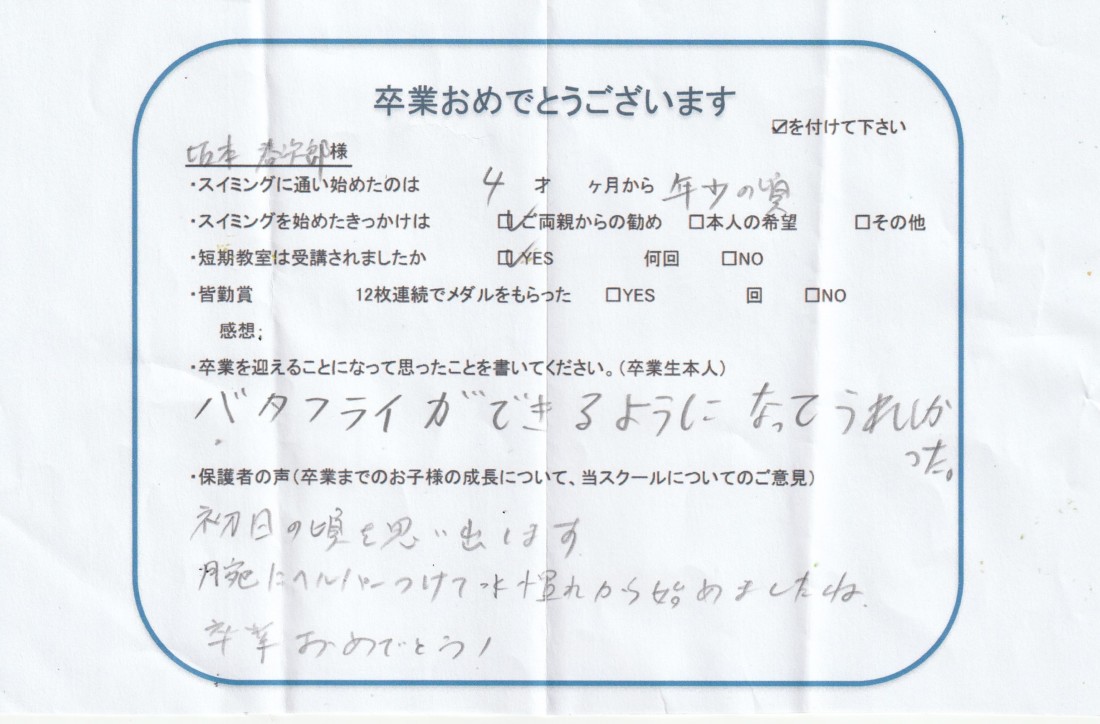 卒業おめでとうございます
☑を付けて下さい
坂本 春次郎様
・スイミングに通い始めたのは 4 才 ヶ月から 年少の頃
・スイミングを始めたきっかけは ☑ご両親からの勧め □本人の希望 □その他
・短期教室は受講されましたか ☑YES 何回 □NO
・皆勤賞 12枚連続でメダルをもらった □YES 回 □NO
感想;
・卒業を迎えることになって思ったことを書いてください。(卒業生本人)
バタフライができるようになってうれしか
った。
・保護者の声(卒業までのお子様の成長について、当スクールについてのご意見)
初日の頃を思い出します
腕にヘルパーつけて水慣れから始めましたね
卒業おめでとう!